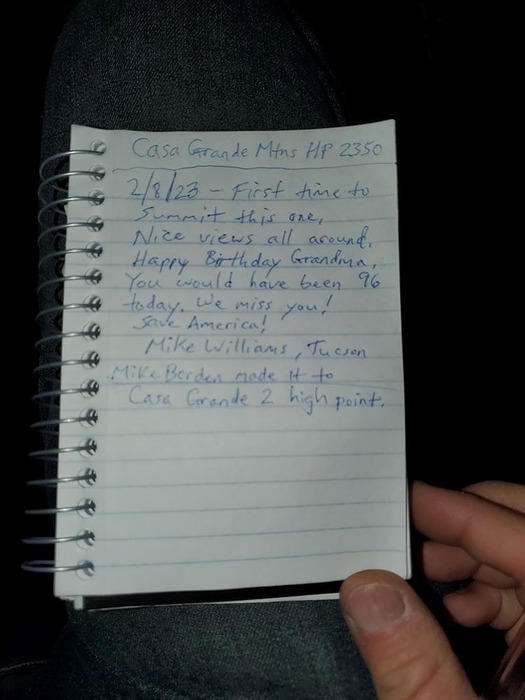 Casa Grande Mtns HP 2350
2/8/23 - First time to
Summit this one,
Nice views all around.
Happy Birthday Grandma,
You would have been 96
today. We miss you!
Save America!
Mike Williams, Tucson
Mike Borden made it to
Casa Grande 2 high point.